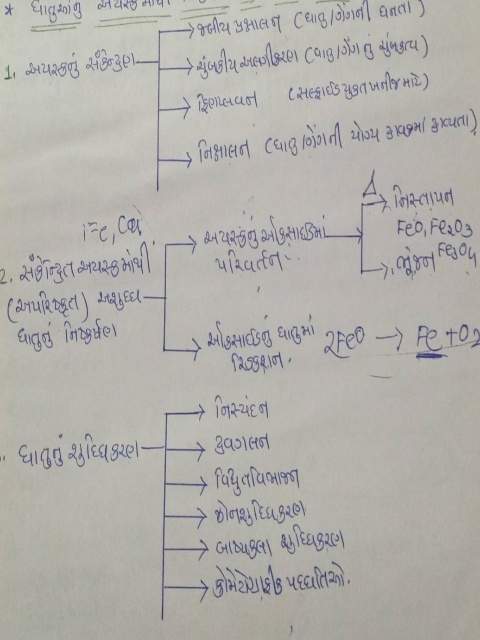 * ધાતુઓનું અયસ્કમાંથી
1. અયસ્કનું સંકેન્દ્રણ
જલીય પ્રક્ષાલન (ધાતુ/ગેંગની ઘનતા)
ચુંબકીય અલગીકરણ (ધાતુ/ગેંગનું ચુંબકત્વ)
ફીણપ્લવન (સલ્ફાઇડ યુક્ત ખનીજ માટે)
નિક્ષાલન (ધાતુ/ગેંગની યોગ્ય દ્રાવકમાં દ્રાવ્યતા)
Fe, Cu
2. સંકેન્દ્રિત અયસ્કમાંથી
(અપરિષ્કૃત) અશુદ્ધ
ધાતુનું નિષ્કર્ષણ
અયસ્કનું ઓકસાઇડમાં
પરિવર્તન.
Δ
નિસ્તાપન
FeO, Fe2O3
ભૂંજન Fe3O4
ઓકસાઇડનું ધાતુમાં
રિડક્શન.
2FeO → Fe + O2
ધાતુનું શુદ્ધિકરણ
નિસ્યંદન
દ્રવગલન
વિદ્યુતવિભાજન
ઝોનશુદ્ધિકરણ
બાષ્પકલા શુદ્ધિકરણ
ક્રોમેટોગ્રાફીક પધ્ધતિઓ.